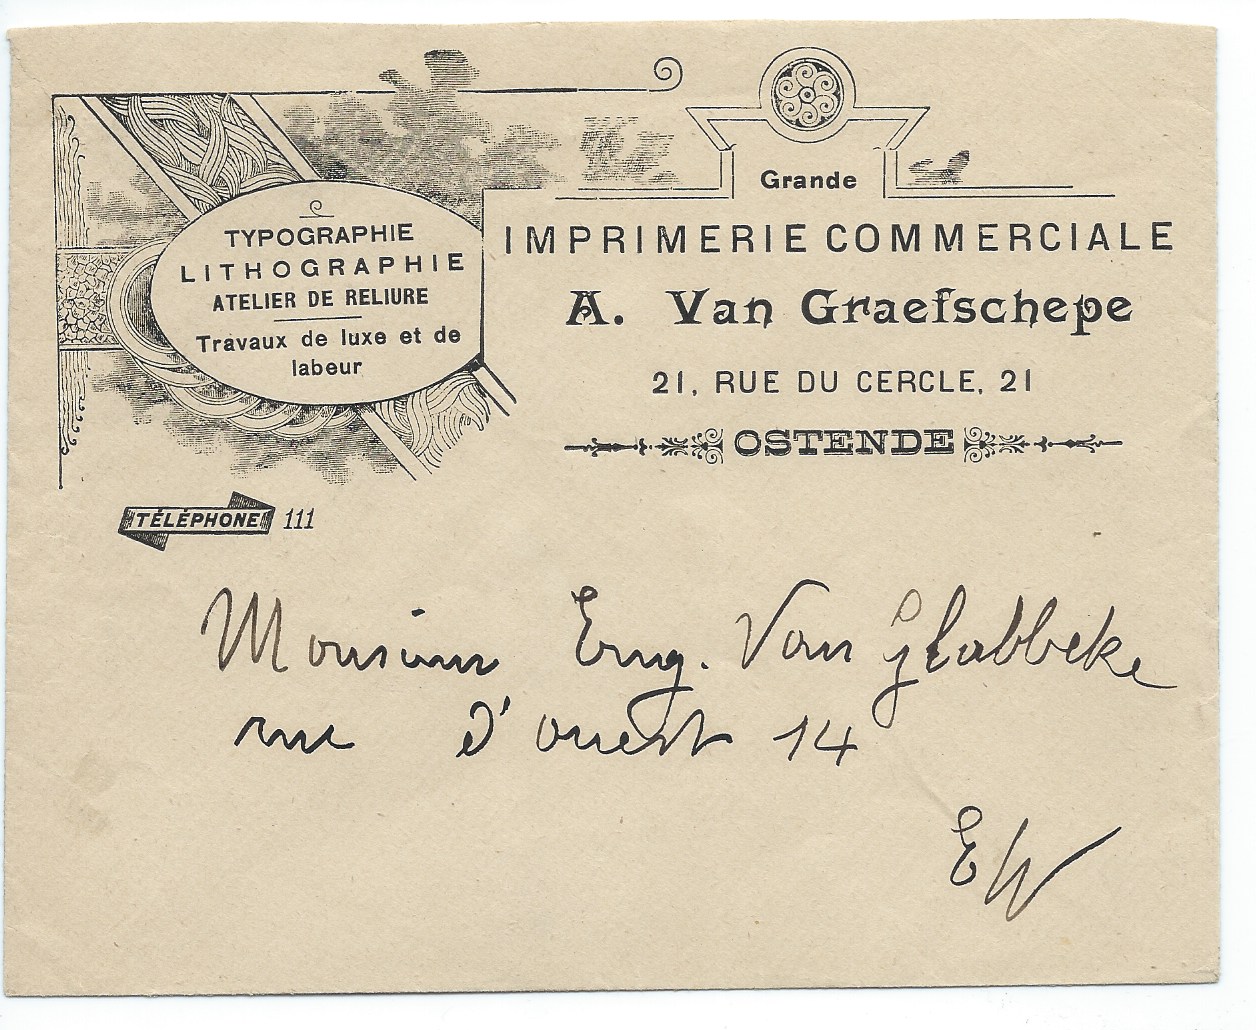 TYPOGRAPHIE
LITHOGRAPHIE
ATELIER DE RELIURE
Travaux de luxe et de
labeur
Grande
IMPRIMERIE COMMERCIALE
A. Van Graefschepe
21, RUE DU CERCLE, 21
OSTENDE
TÉLÉPHONE 111
Monsieur Eug. Van Glabbeke
rue d'ouest 14
EW